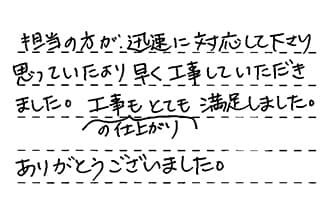 担当の方が、迅速に対応して下さり
思っていたより早く工事していただき
ました。工事もとても満足しました。
の仕上がり
ありがとうございました。